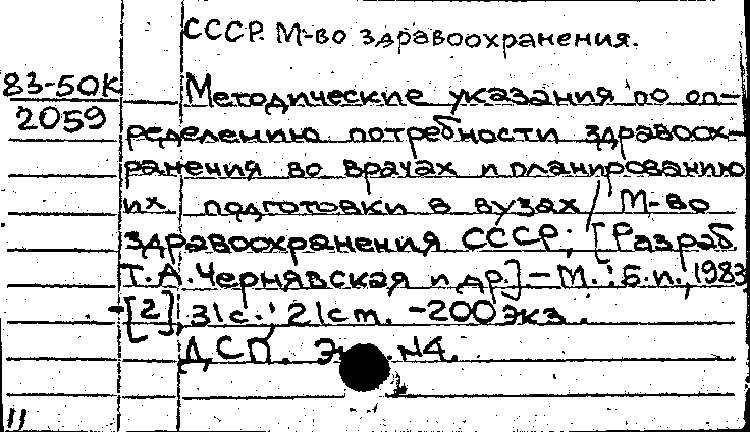 СССР. М-во здравоохранения.
83-50К
2059
Методические указания по оп-
ределению потребности здравоох-
ранения во врачах и планированию
их подготовки в вузах / М-во
здравоохранения СССР; [Разраб.
Т.А. Чернявская и др.] — М.: Б.и., 1983
-[2], 31с.; 21см. -200экз.
ДСП. №4.
11